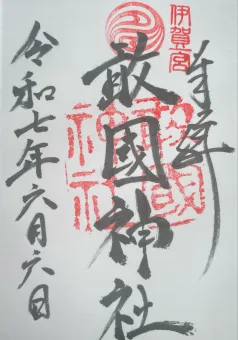 奉拝
伊賀宮
敢國神社
令和七年六月六日